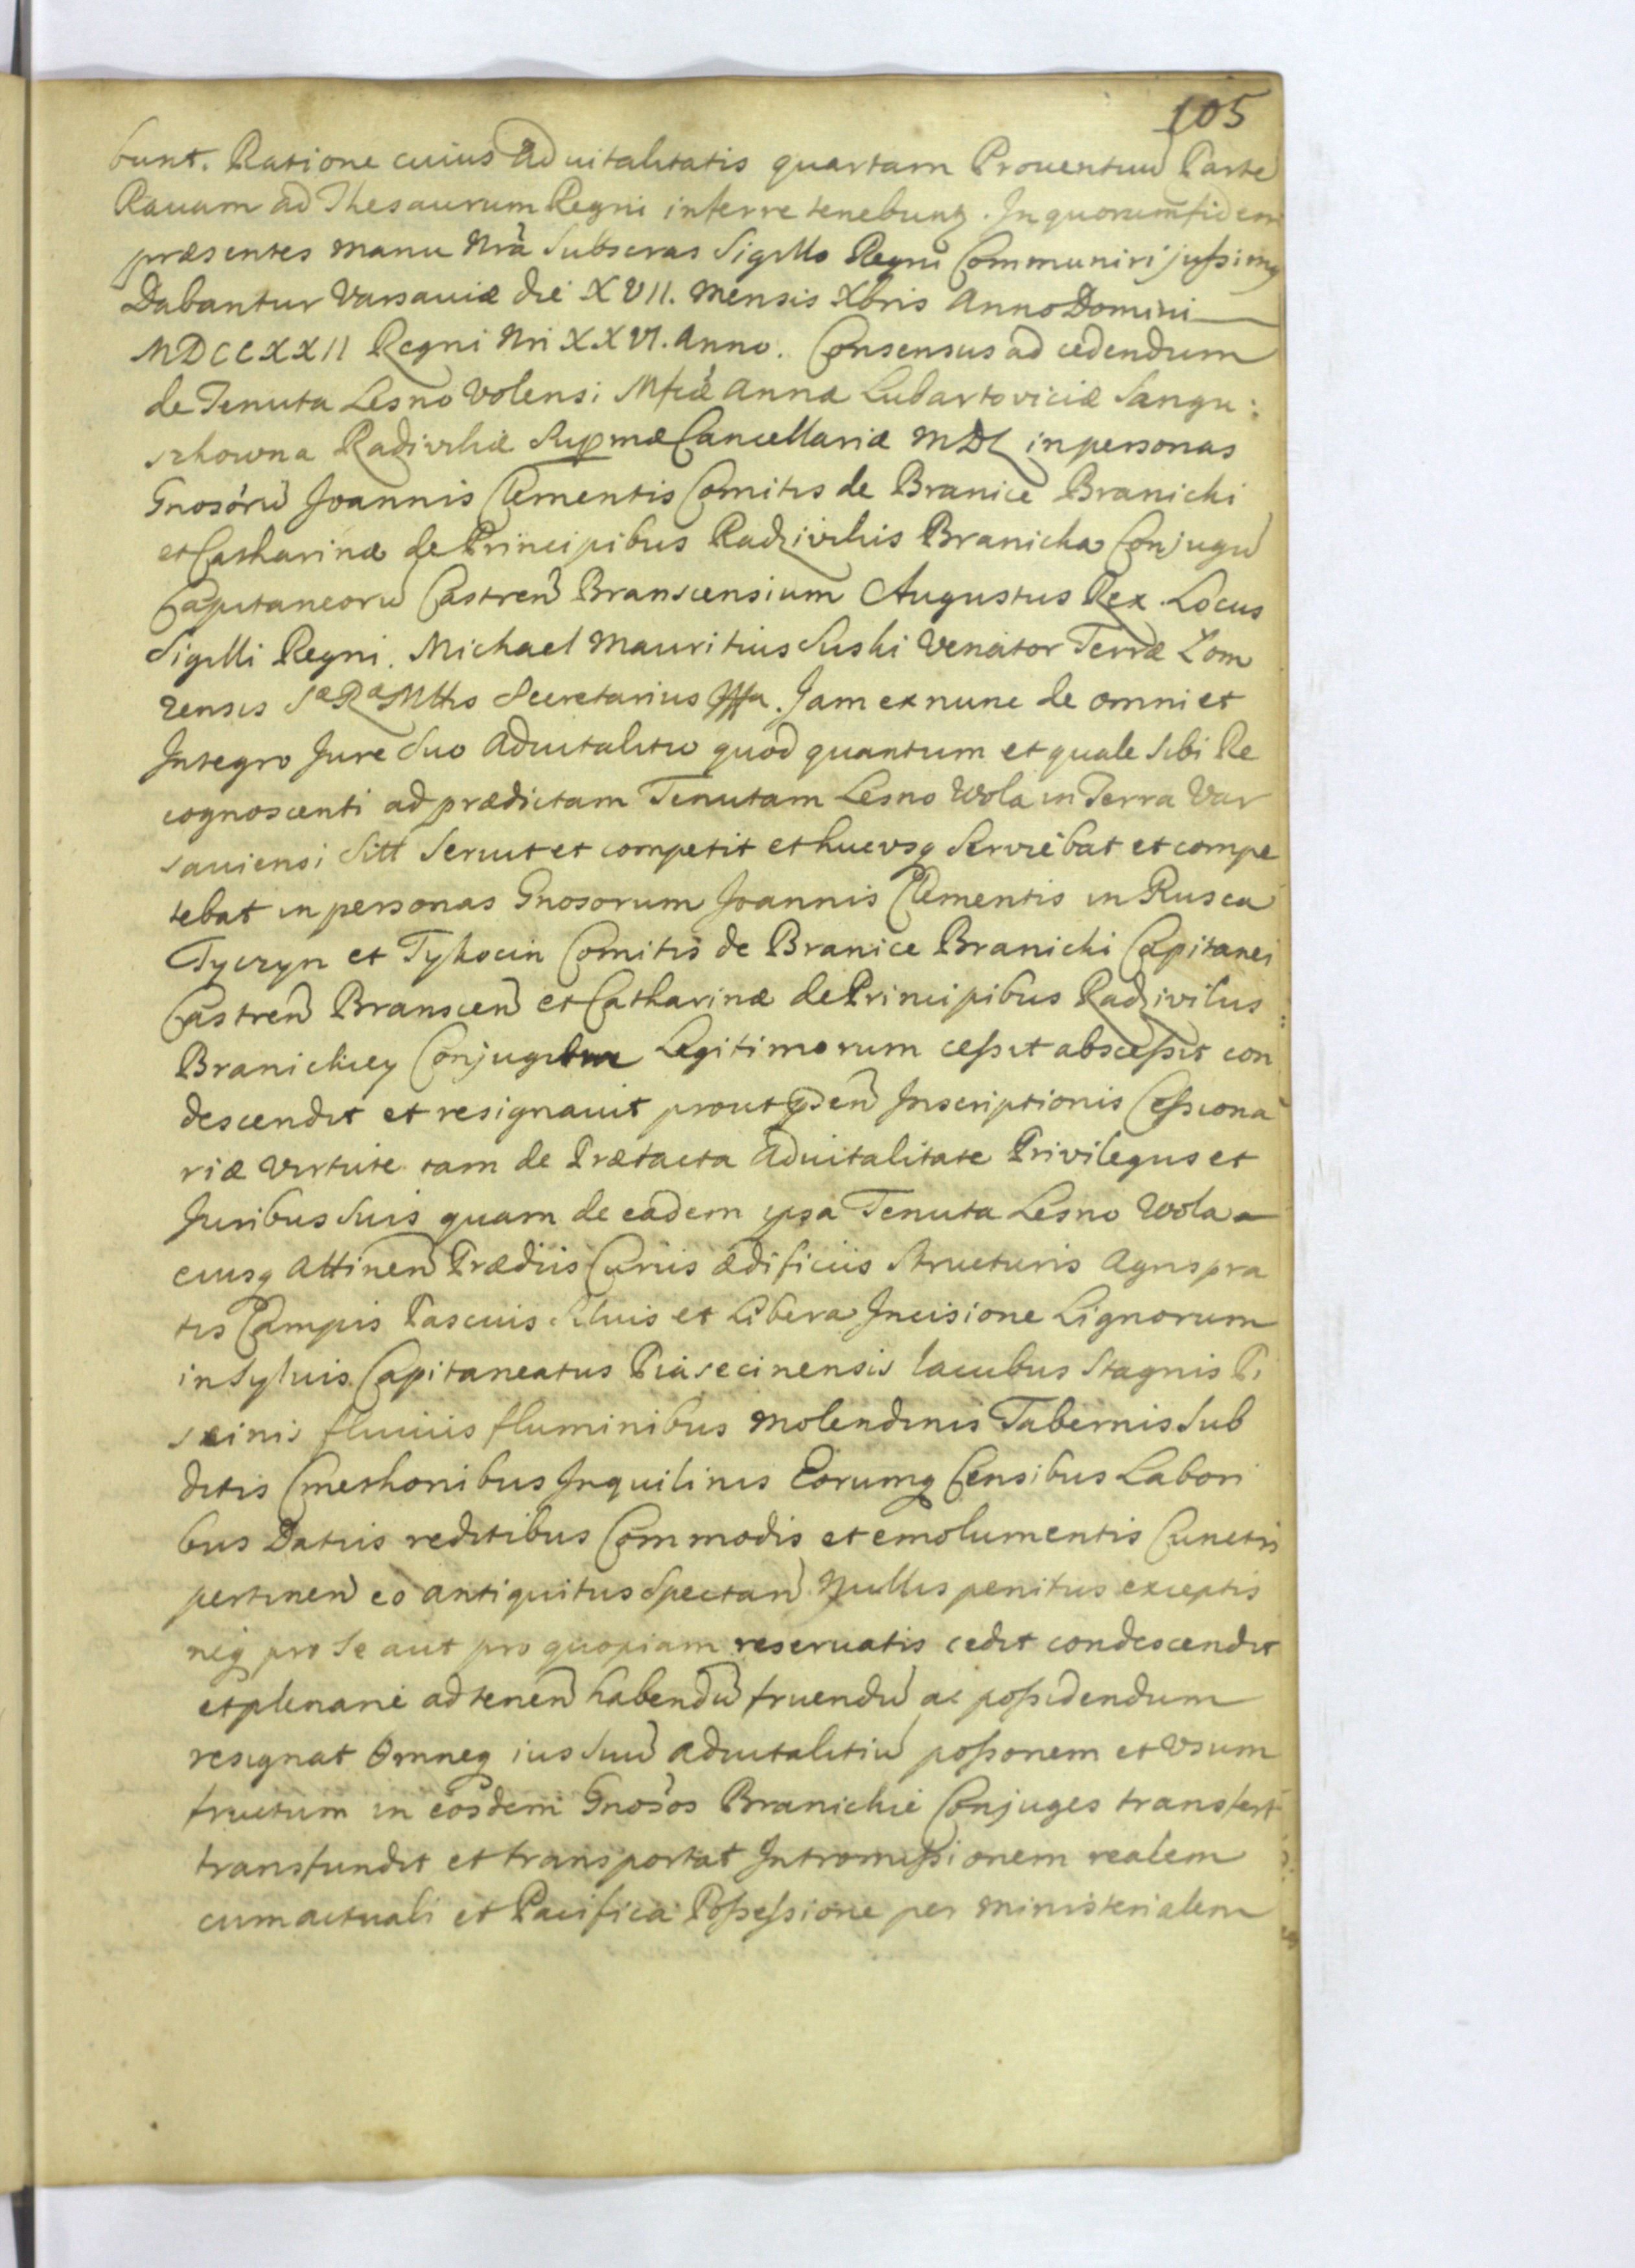 105
bunt. Ratione cuius Advitalitatis quartam Proventuũ Parte
Ravam ad Thesaurum Regni inferre tenebunt. In quorum fidem
præsentes manu Nrã Subscras Sigillo Regni Communiri jussimq
Dabantur Varsaviæ die XVII. mensis Xbris Anno Domini
MDCCXXII Regni Nri XXVI. Anno. Consensus ad cedendum
de Tenuta Lesno Volensi Mfcæ Annæ Lubartoviciæ Sangu:
szkowna Radivilia Supmæ Cancellariæ MDL in personas
Gnosórũ Joannis Clementis Comitis de Branice Branicki
et Catharinæ de Principibus Radzivilis Branicka Conjugũ
Capitaneorũ Castren̄ Branscensium Augustus Rex. Locus
Sigilli Regni. Michael Mauritius Suski Venator Terræ Lom
zensis Sæ Ræ Mttis Secretarius Mpa. Jam ex nunc de omni et
Integro Jure Suo Advitalitio quod quantum et quale Sibi Re
cognoscenti ad prædictam Tenutam Lesno Wola in Terra Var
saviensi Sitt Servit et competit et hucusq Serviebat et compe
tebat in personas Gnosorum Joannis Clementis in Rusca
Tyczyn et Tykocin Comitis de Branice Branicki Capitanei
Castren̄ Branscen̄ et Catharinæ de Principibus Radzivilus
Branickiey Conjugum Legitimorum cessit abscessit con
descendit et resignavit prout pden̄ Inscriptionis Cessiona
riæ Virtute tam de Prætacta Advitalitate Privilegiis et
Juribus Suis quam de eadem ipsa Tenuta Lesno Wola
eiusq Attinen̄ Prædiis Curiis ædificiis Structuris Agris pra
tis Campis Pascuis Siluis et Libera Incisione Lignorum
in Syluis Capitaneatus Piasecinensis lacubus Stagnis Pi
scinis fluuiis fluminibus Molendinis Tabernis Sub
ditis Cmethonibus Inquilinis Eorumq Censibus Labori
bus Datiis reditibus Commodis et emolumentis Cunctis
pertinen̄ eo antiquitus Spectan̄ Nullis penitus exceptis
neq pro Se aut pro quopiam reservatis cedit condescendit
et plenarie ad tenen̄ habendũ fruendũ ac possidendum
resignat Omneq ius Suũ advitalitiũ possonem et Usum
fructum in eosdem Gnosos Branickie Conjuges transfert
transfundit et transportat Intromissionem realem
cum actuali et Pacifica Possessione per Ministerialem